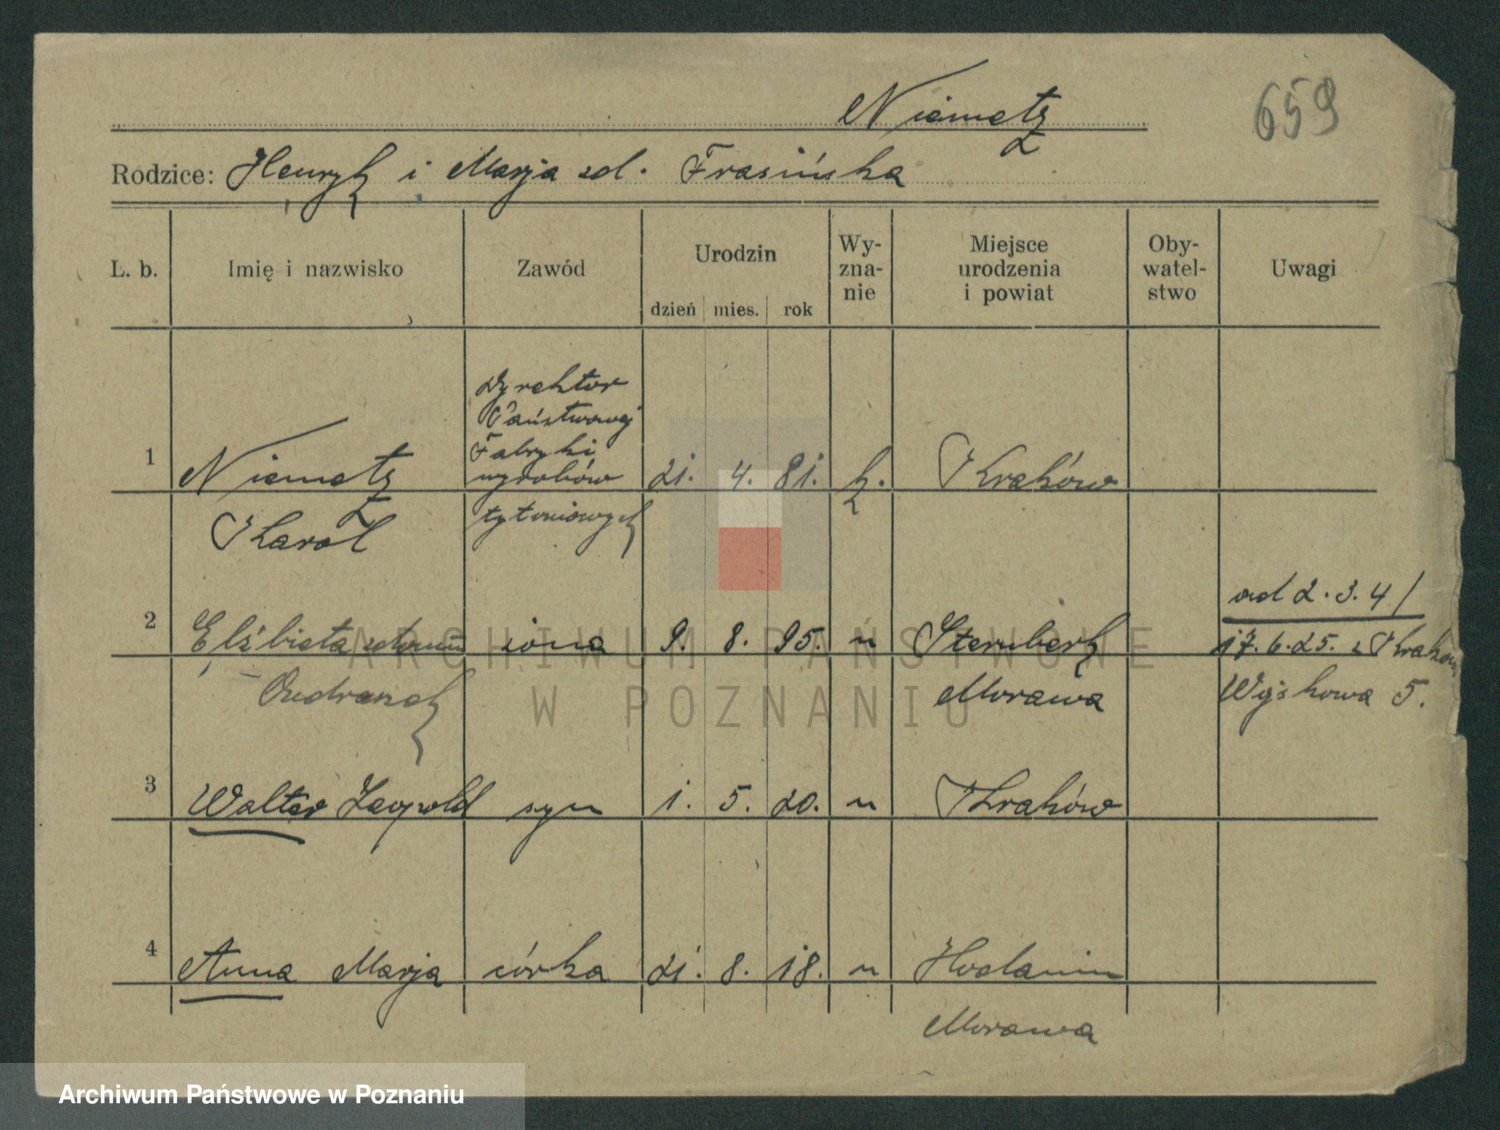 Niemetz
659
Rodzice: Henryk i Marja zd. Frasińska
L. b. Imię i nazwisko Zawód Urodzin dzień mies. rok Wy-zna-nie Miejsce urodzenia i powiat Oby-watel-stwo Uwagi
Dyrektor
Państwowej
Fabryki
1 Niemetz wyrobów 21. 4. 81. k. Kraków
Karol tytoniowych
od 2.3.41
2 Elżbieta żona 9. 8. 95. " Sternberk 17.6.25. z Krakow
Morawa Wyskowa 5.
3 Walter Leopold syn 1. 5. 20. " Kraków
4 Anna Marja córka 21. 8. 18. " Hodanin
Morawa
ARCHIWUM PAŃSTWOWE
W POZNANIU
Archiwum Państwowe w Poznaniu